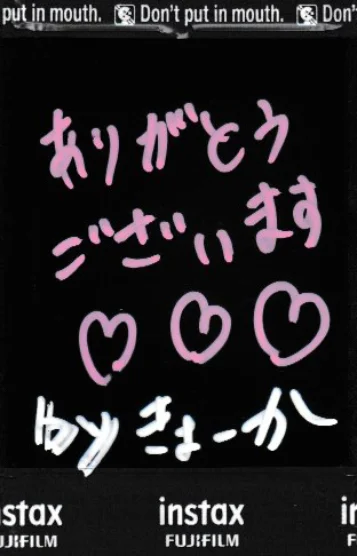 put in mouth. Don't put in mouth. Don'
ありがとう
ございます
♡♡♡
by きょーか
instax instax
FUJIFILM FUJIFILM